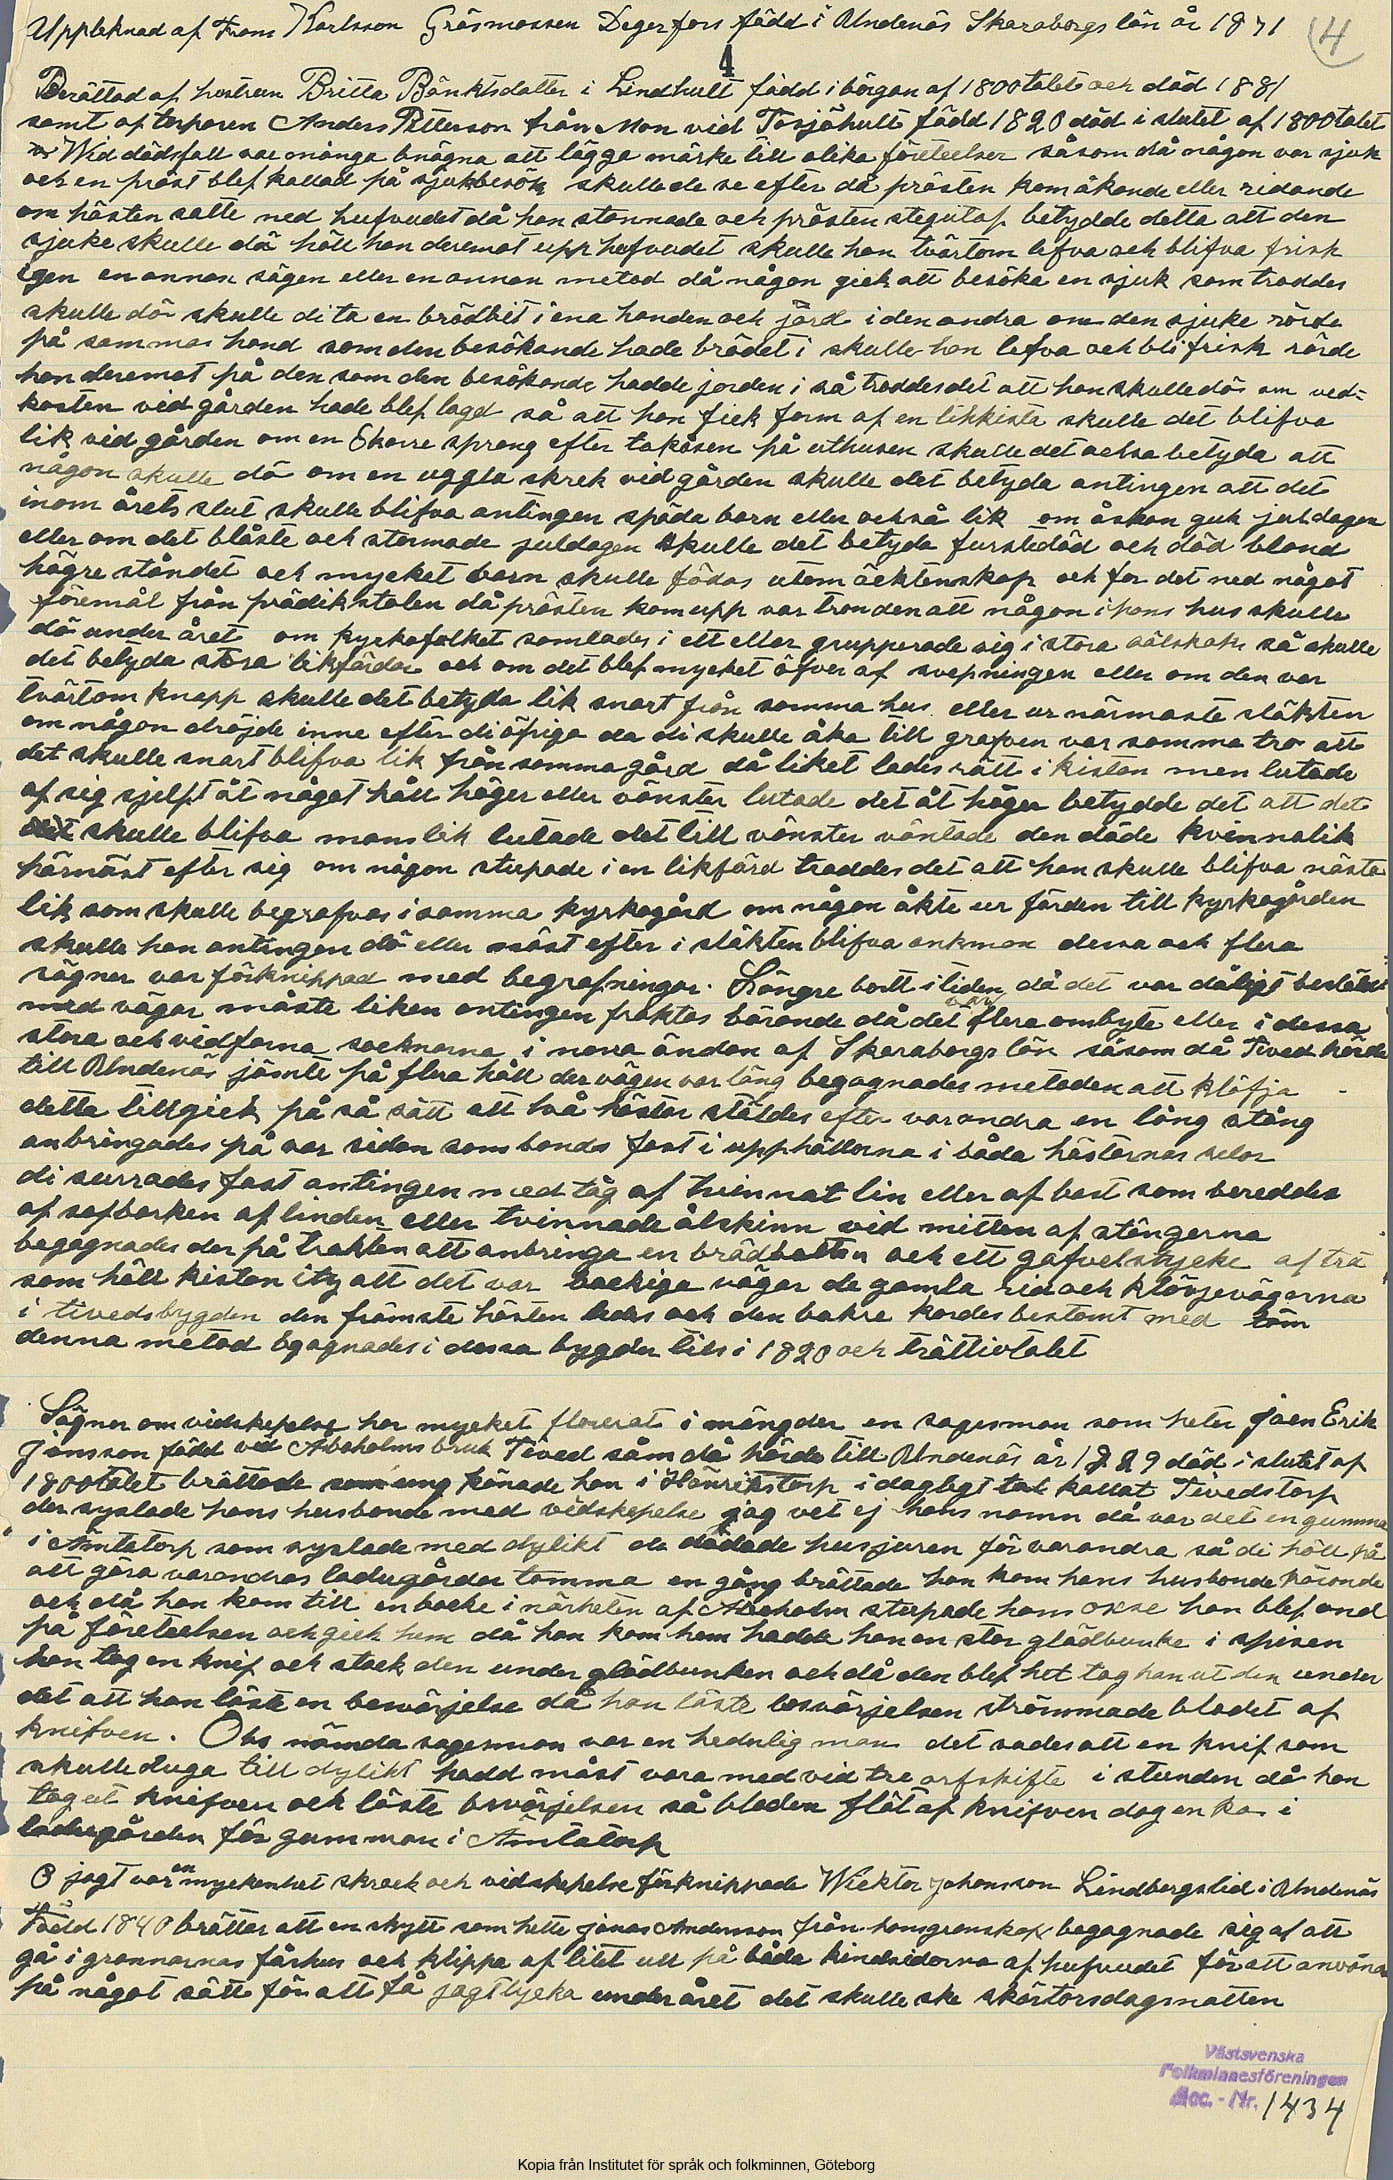 Upptecknad af Frans Karlsson Gräsmossen Degerfors född i Undenäs Skaraborgs län år 1871
(4
4
Berättad af hustrun Britta Bänktsdotter i Lindhult född i börgan af 1800talet och död 1881
samt af torparen Anders Petterson från Mon vid Torsjöhult född 1820 död i slutet af 1800talet
Wid dödsfall var många bnägna att lägga märke till olika företeelser såsom då någon var sjuk
och en präst blef kallad på sjukbesök skullede se efter då prästen kom åkande eller ridande
om hästen satte ned hufvudet då han stannade och prästen steg utaf betydde detta att den
sjuke skulle dö höll han deremot upp hufvudet skulle han tvärtom lefva och blifva frisk
igen en annan sägen eller en annan metod då någon gick att besöka en sjuk som troddes
skulle dö skulle di ta en brödbit i ena handen och jord i den andra om den sjuke rörde
på samma hand som den besökande hade brödet i skulle han lefva och bli frisk rörde
han deremot på den som den besökande hadde jorden i så troddes det att han skulle dö om ved=
kasten vid gården hade blef lagd så att han fick form af en likkista skulle det blifva
lik vid gården om en Skorre sprang efter takåsen på uthusen skulle det ochsa betyda att
någon skulle dö om en uggla skrek vid gården skulle det betyda antingen att det
inom årets slut skulle blifva antingen späda barn eller också lik om åskan gick juldagen
eller om det blåste och stormade juldagen skulle det betyda furstedöd och död bland
högre ståndet och mycket barn skulle födas utom äcktenskap och for det ned något
föremål från prädikstolen då prästen kom upp var tron den att någon i hans hus skulle
dö under året om kyrkofolket samlades i ett eller grupperade sig i stora sälskap så skulle
det betyda stora likfärder och om det blef mycket öfver af svepningen eller om den var
tvärtom knapp skulle det betyda lik snart från samma hus eller ur närmaste släkten
om någon dröjde inne efter di öfriga da di skulle åka till grafven var samma tro att
det skulle snart blifva lik från samma gård då liket lades rätt i kistan men lutade
af sig sjelft åt något håll höger eller vänster lutade det åt höger betydde det att det
skulle blifva manslik lutade det till vänster väntade den döde kvinnolik
härnäst efter sig om någon stupade i en likfärd troddes det att han skulle blifva nästa
lik som skulle begrafvas i samma kyrkogård om någon åkte ur färden till kyrkogården
skulle han antingen dö eller näst efter i släkten blifva ankman dessa och flera
sägner var förknippad med begrafningar. Längre bort i tiden då det var dåligt bestält
med vägar måste liken antingen fraktas bärande då det var flera ombyte eller i dessa
stora och vidfarna socknarna i norra ändan af Skaraborgs län såsom då Tived hörde
till Undenäs jämte på flera håll der vägen var lång begagnades metoden att klöfja
detta tillgick på så sätt att två hästar ställdes efter varandra en lång stång
anbringades på var sidan som bands fast i upphållorna i båda hästarnas selar
di surrades fast antingen med tåg af tvinnat lin eller af bast som bereddes
af safbarken af linden eller tvinnade ålskinn vid mitten af stängerna
begagnades der på trakten att anbringa en brädbotten och ett gafvelstycke af trä
som höll kistan ity att det var backiga vägar de gamla rid och klövjevägarna
i tivedsbygden den främste hästen leddes och den bakre kördes bestämt med töm
denna metod bgagnades i dessa bygder tills i 1820 och trättiotalet
Sägner om vidskepelse har mycket florerat i mängder en sagesman som heter Joen Erik
Jönsson född vid Aboholms bruk Tived såm då hörde till Undenäs år 1829 död i slutet af
1800talet brättade som ung tjänade han i Henrikstorp i dagligt tal kallat Tivedstorp
der syslade hans husbonde med vidskepelse jag vet ej hans namn då var det en gumma
i Ämtatorp som syslade med dylikt de dödade husjuren för varandra så di höll på
att göra varandras ladugårdar tomma en gång brättade han kom hans husbonde körande
och då han kom till en backe i närheten af Aboholm stupade hans oxe han blef ond
på företeelsen och gick hem då han kom hem hadde han en stor glödbunke i spisen
han tog en knif och stack den under glödbunken och då den blef het tog han ut den under
det att han läste en beswärjelse då han läste beswärjelsen strömmade blodet af
knifven. Obs nämda sagesman var en hederlig man det sades att en knif som
skulle duga till dylikt hadd måst vara med vid tre arfskifte i stunden då han
tog ut knifven och läste beswärjelsen så bloden flöt af knifven dog en ko i
ladugården för gumman i Ämtatorp
O jagt var en myckenhet skrock och vidskepelse förknippade Wicktor Johansson Lindbergslid i Undenäs
Född 1840 brättar att en skytt som hette Jonas Anderson från hans grannskap begagnade sig af att
gå i grannarnas fårhus och klippa af litet ull på båda kindsidorna af hufvudet för att använda
på något sätt för att få jagtlycka under året det skulle ske skärtorsdagsnatten
Västsvenska
Folkminnesföreningen
Acc. - Nr. 1434
Kopia från Institutet för språk och folkminnen, Göteborg